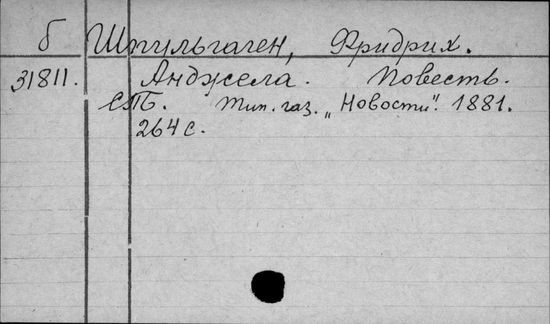 б Шпильгаген, Фридрих.
31811. Анджела. Повесть.
СПБ. Тип. газ. „Новости". 1881.
264 с.